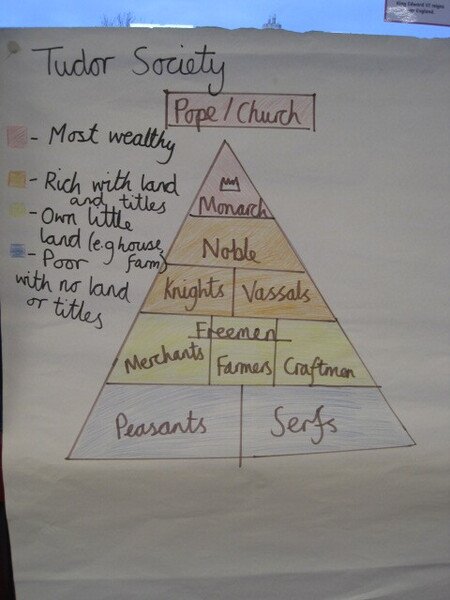 King Edward VI reigns
over England.
Tudor Society
Pope / Church
- Most wealthy
- Rich with land
and titles
- Own little
land (e.g house,
farm)
- Poor
with no land
or titles
Monarch
Noble
Knights
Vassals
Freemen
Merchants
Farmers
Craftmen
Peasants
Serfs